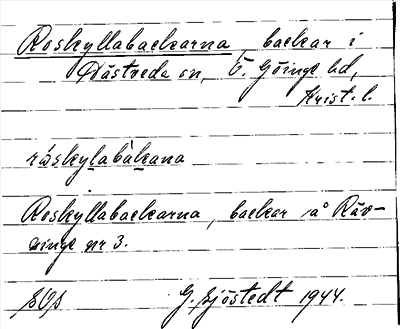 Roskyllabackarna, backar i
Östreda sn, Ö. Göinge hd,
Krist. l.
råskylabàkana
Roskyllabackarna, backar på Räv-
ninge nr 3.
G. Sjöstedt 1944.